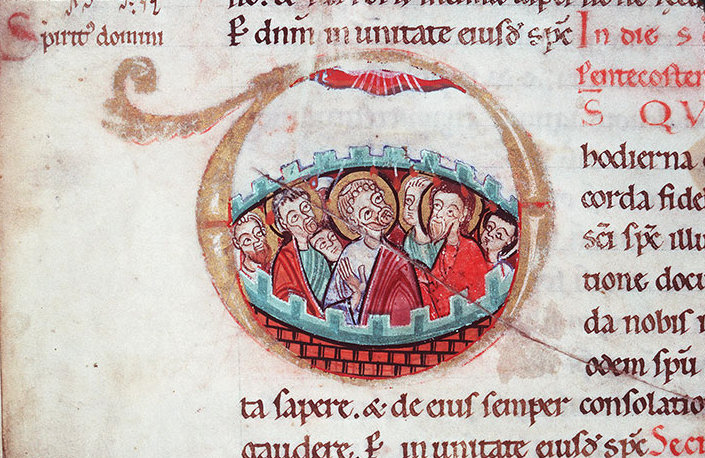 Spiritꝰ domini
P dnm in unitate eiusd̄ sp̄c In die s
pentecosten
D S QV
hodierna
corda fide
sc̄i sp̄c illu
tione docu
da nobis
odem sp̄u
ta sapere. & de eius semper consolatio
gaudere. P in unitate eiusd̄ sp̄c Secr